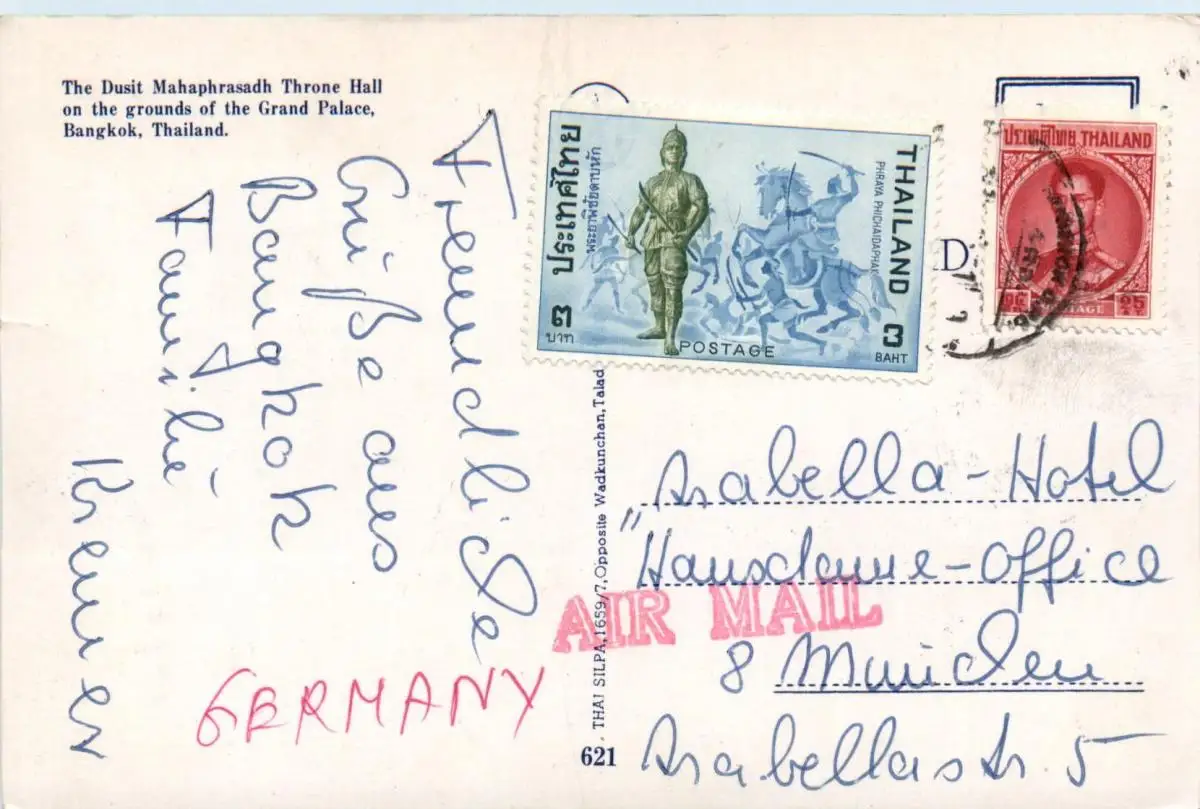 The Dusit Mahaphrasadh Throne Hall
on the grounds of the Grand Palace,
Bangkok, Thailand.
Freundliche
Grüße aus
Bangkok
Familie
Kremer
GERMANY
ประเทศไทย
พระยาพิชัยดาบหัก
๓
บาท
THAILAND
PHRAYA PHICHAIDAPHAK
3
BAHT
POSTAGE
ประเทศไทย THAILAND
25
POSTAGE
AIR MAIL
THAI SILPA, 1659/7, Opposite Wadkunchan, Talad
621
Arabella-Hotel
"Hausdame-Office
8 München
Arabellastr. 5